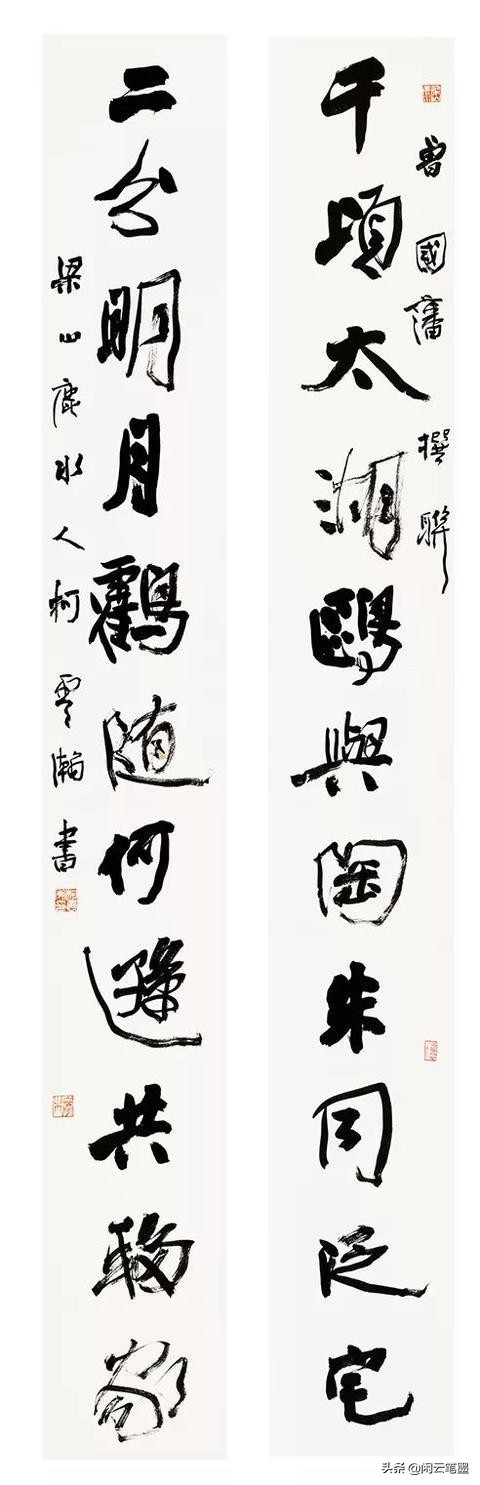 曾國藩撰聯
千頃太湖鷗與陶朱同泛宅
二分明月鶴随何遜共移家
梁山鹿水人柯雲瀚書
头条 @闲云笔墨